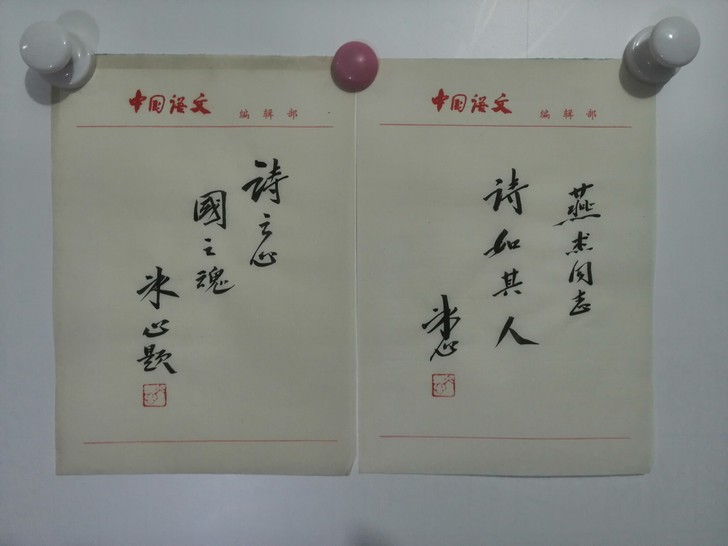 中国语文 编辑部
詩之心
國之魂
冰心題
中国语文 编辑部
燕杰同志
詩如其人
冰心